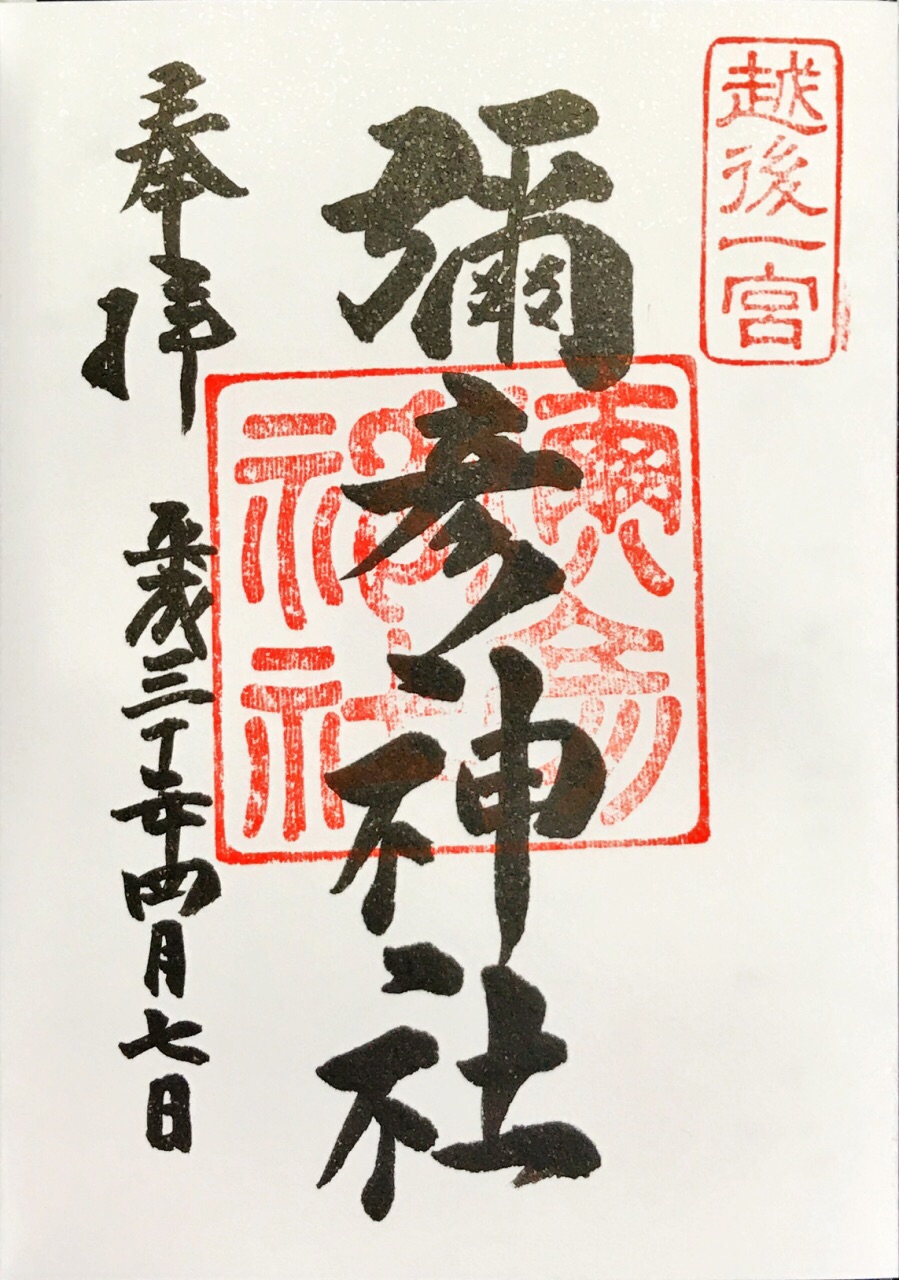 越後一宮
彌彦神社
奉拝
平成三十年四月七日